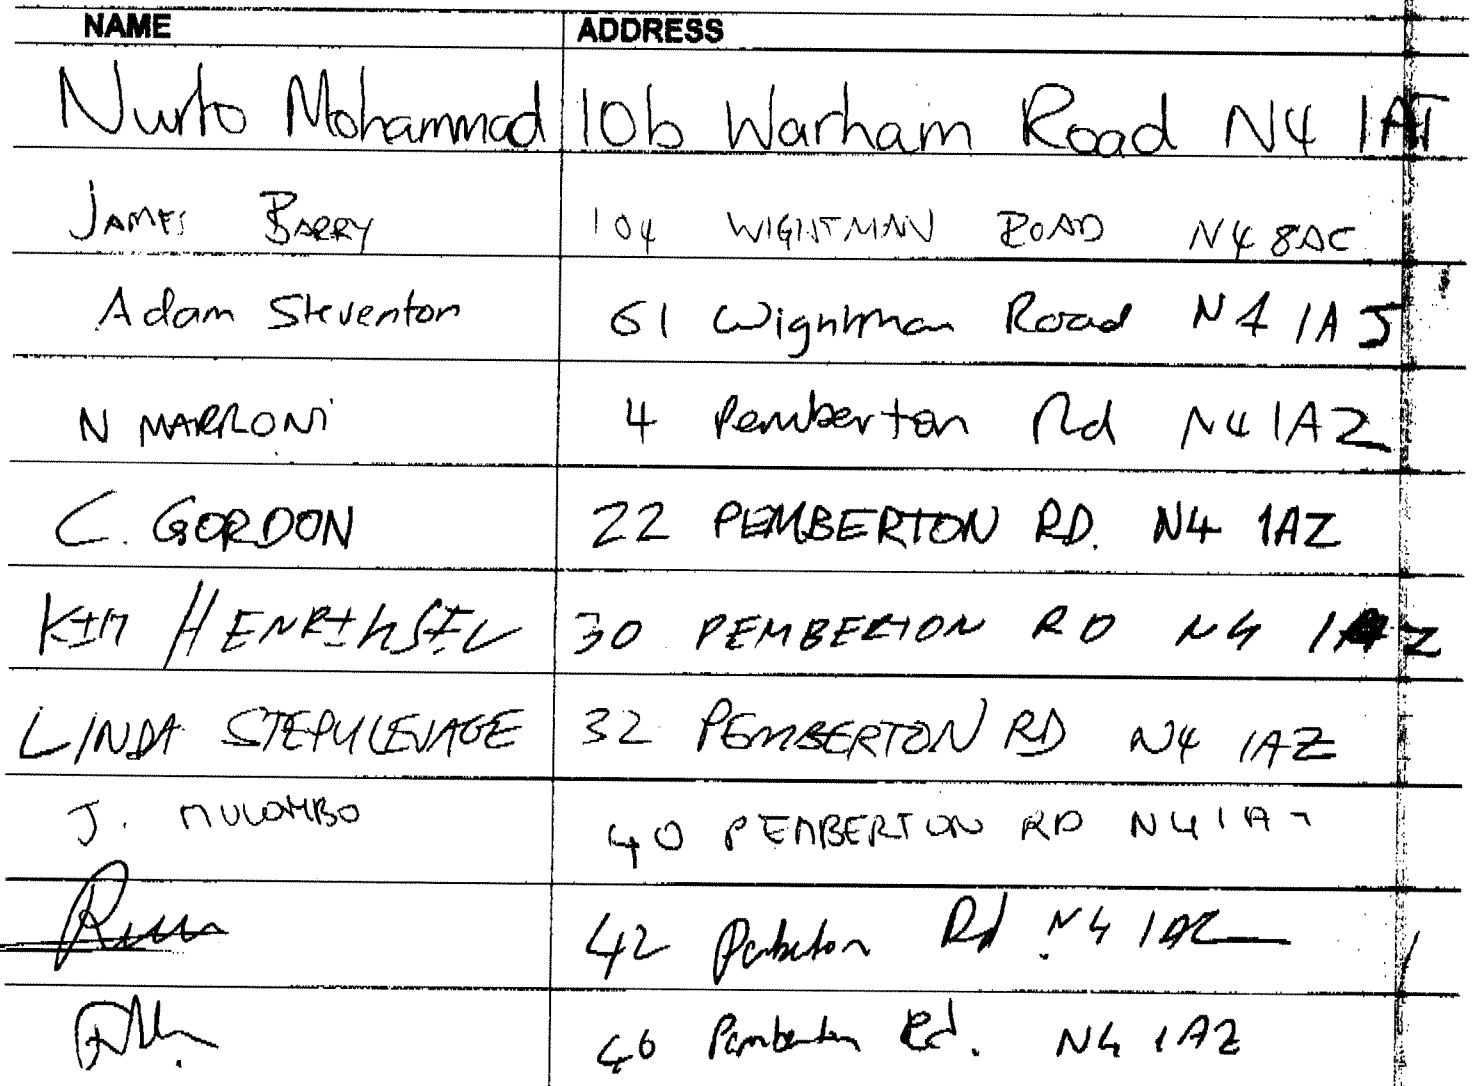 NAME ADDRESS
Nurto Mohammad 10b Warham Road N4 1AT
JAMES BARRY 104 WIGHTMAN ROAD N4 8AC
Adam Steventon 61 Wightman Road N4 1AJ
N MARRONI 4 Pemberton Rd N4 1AZ
C. GORDON 22 PEMBERTON RD. N4 1AZ
KIM 30 PEMBERTON RD N4 1AZ
LINDA STEPULEVAGE 32 PEMBERTON RD N4 1AZ
J. MULOMBO 40 PEMBERTON RD N4 1A
42 Pemberton Rd N4 1AZ
46 Pemberton Rd. N4 1AZ